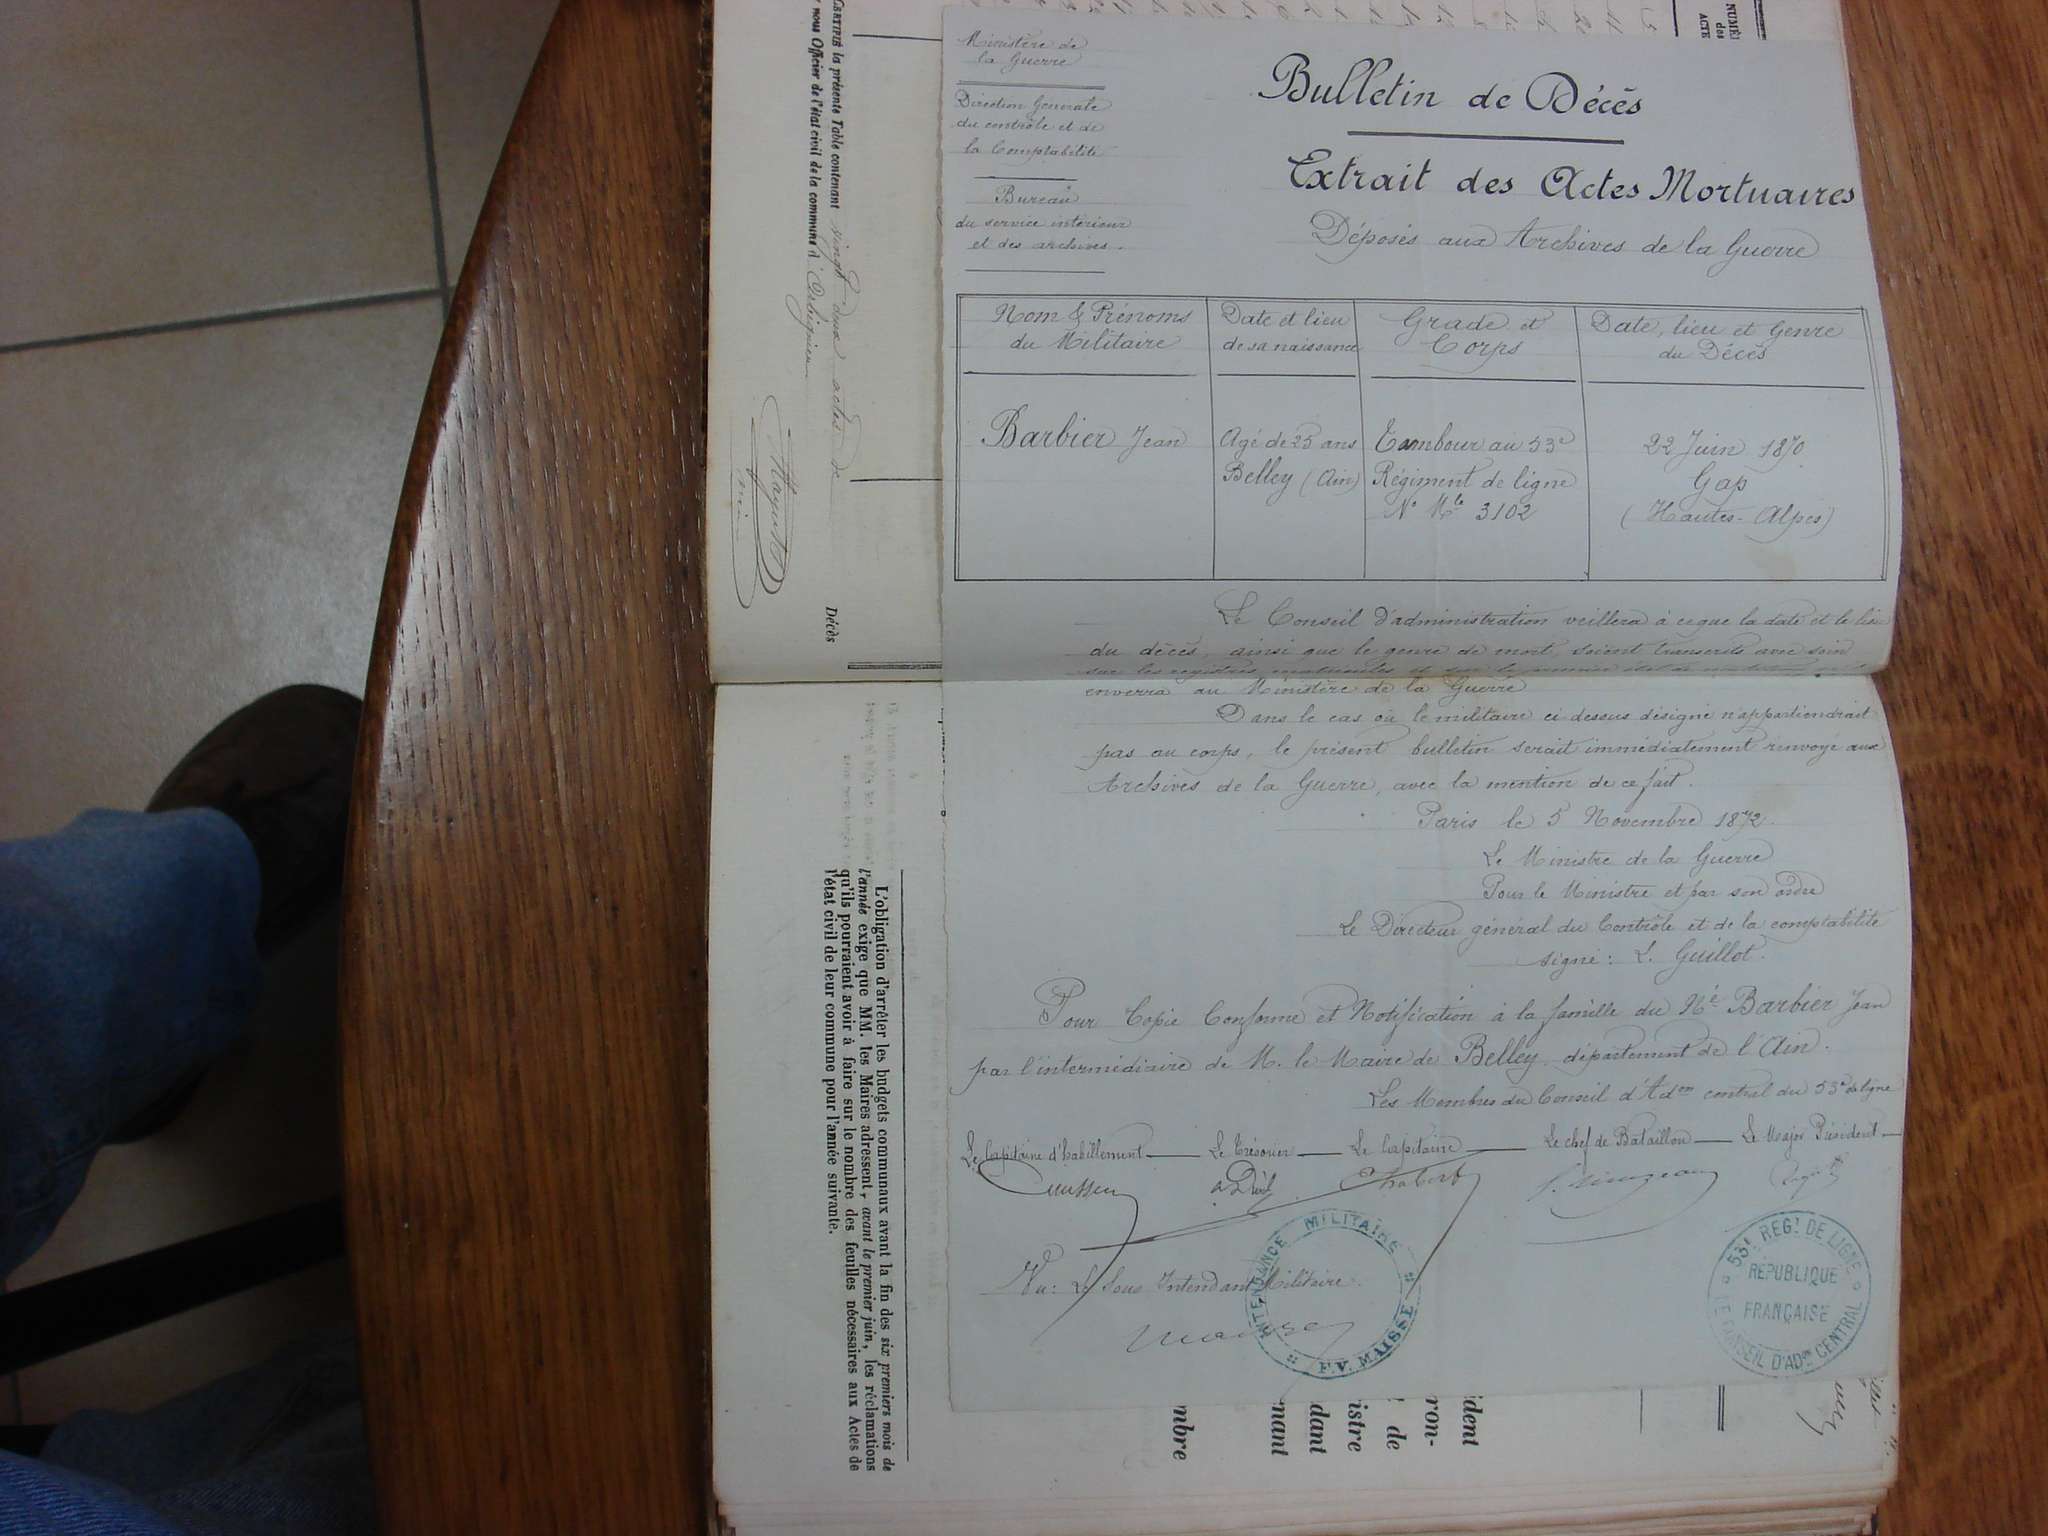 Ministère de
la Guerre
Direction Générale
du contrôle et de
la Comptabilité
Bureau
du service intérieur
et des archives.
Bulletin de Décès
Extrait des Actes Mortuaires
Déposés aux Archives de la Guerre
Nom & Prénoms
du Militaire
Date et lieu
de sa naissance
Grade et
Corps
Date, lieu et Genre
du Décès
Barbier Jean
Agé de 25 ans
Belley (Ain)
Tambour au 53e
Régiment de ligne
N° Mle 3102
22 Juin 1870
Gap
(Hautes-Alpes)
Le Conseil d'administration veillera à ce que la date et le lieu
du décès, ainsi que le genre de mort, soient transcrits avec soin
sur les registres matricules et sur le premier état de
enverra au Ministère de la Guerre
Dans le cas où le militaire ci dessus désigné n'appartiendrait
pas au corps, le présent bulletin serait immédiatement renvoyé aux
Archives de la Guerre, avec la mention de ce fait.
Paris le 5 Novembre 1872.
Le Ministre de la Guerre
Pour le Ministre et par son ordre
Le Directeur général du Contrôle et de la comptabilité
signé: L. Guillot.
Pour Copie Conforme et Notification à la famille du Né Barbier Jean
par l'intermédiaire de M. le Maire de Belley département de l'Ain.
Les Membres du Conseil d'Adon central du 53e de ligne
Le Capitaine d'habillement — Le Trésorier — Le Capitaine — Le chef de Bataillon — Le Major Président —
Chabert
Vu: Le Sous Intendant Militaire.
INTENDANCE MILITAIRE
F.V. MAISSE
53E REGT DE LIGNE
RÉPUBLIQUE
FRANÇAISE
LE CONSEIL D'ADON CENTRAL
NUMÉR
des
ACTE
CERTIFIÉ la présente Table contenant vingt deux actes de
Décès
nous Officier de l'état civil de la commune d'
L'obligation d'arrêter les budgets communaux avant la fin des six premiers mois de
l'année exige que MM. les Maires adressent, avant le premier juin, les réclamations
qu'ils pourraient avoir à faire sur le nombre des feuilles nécessaires aux Actes de
l'état civil de leur commune pour l'année suivante.
ident
ron-
de
istre
dant
nant
mbre